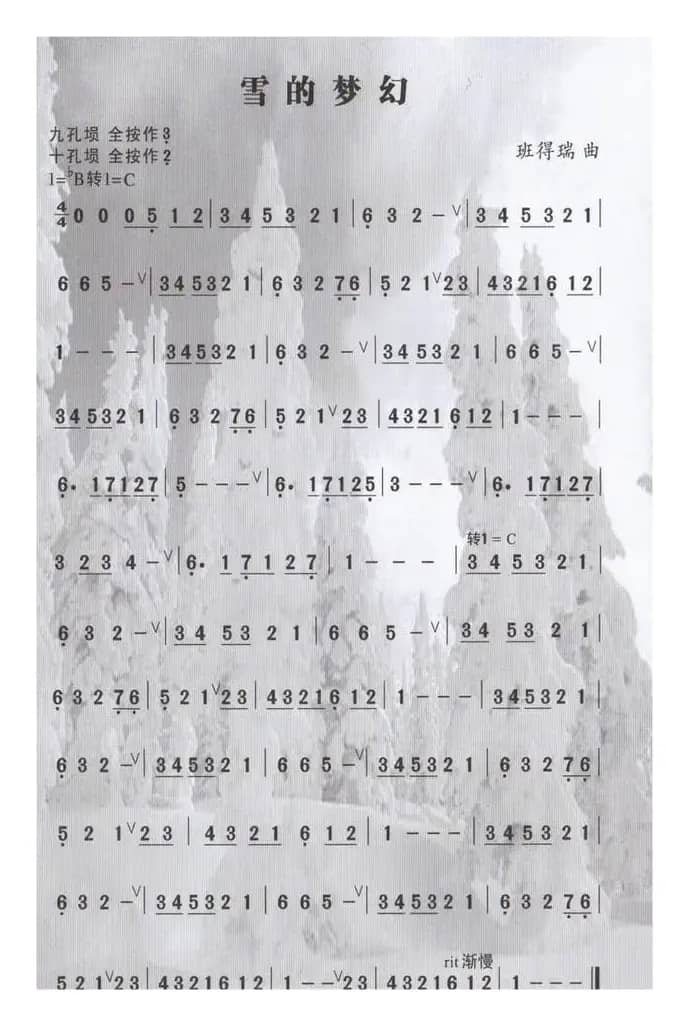 雪的梦幻
九孔埙 全按作3
十孔埙 全按作2
班得瑞 曲
1=♭B转1=C
4/4 0 0 0 5 1 2 | 3 4 5 3 2 1 | 6 3 2 – V | 3 4 5 3 2 1 |
6 6 5 – V | 3 4 5 3 2 1 | 6 3 2 7 6 | 5 2 1 V 2 3 | 4 3 2 1 6 1 2 |
1 – – – | 3 4 5 3 2 1 | 6 3 2 – V | 3 4 5 3 2 1 | 6 6 5 – V |
3 4 5 3 2 1 | 6 3 2 7 6 | 5 2 1 V 2 3 | 4 3 2 1 6 1 2 | 1 – – – |
6· 1 7 1 2 7 | 5 – – – V | 6· 1 7 1 2 5 | 3 – – – V | 6· 1 7 1 2 7 |
转1=C
3 2 3 4 – V | 6· 1 7 1 2 7 | 1 – – – | 3 4 5 3 2 1 |
6 3 2 – V | 3 4 5 3 2 1 | 6 6 5 – V | 3 4 5 3 2 1 |
6 3 2 7 6 | 5 2 1 V 2 3 | 4 3 2 1 6 1 2 | 1 – – – | 3 4 5 3 2 1 |
6 3 2 – V | 3 4 5 3 2 1 | 6 6 5 – V | 3 4 5 3 2 1 | 6 3 2 7 6 |
5 2 1 V 2 3 | 4 3 2 1 6 1 2 | 1 – – – | 3 4 5 3 2 1 |
6 3 2 – V | 3 4 5 3 2 1 | 6 6 5 – V | 3 4 5 3 2 1 | 6 3 2 7 6 |
rit 渐慢
5 2 1 V 2 3 | 4 3 2 1 6 1 2 | 1 – – – V 2 3 | 4 3 2 1 6 1 2 | 1 – – – ‖